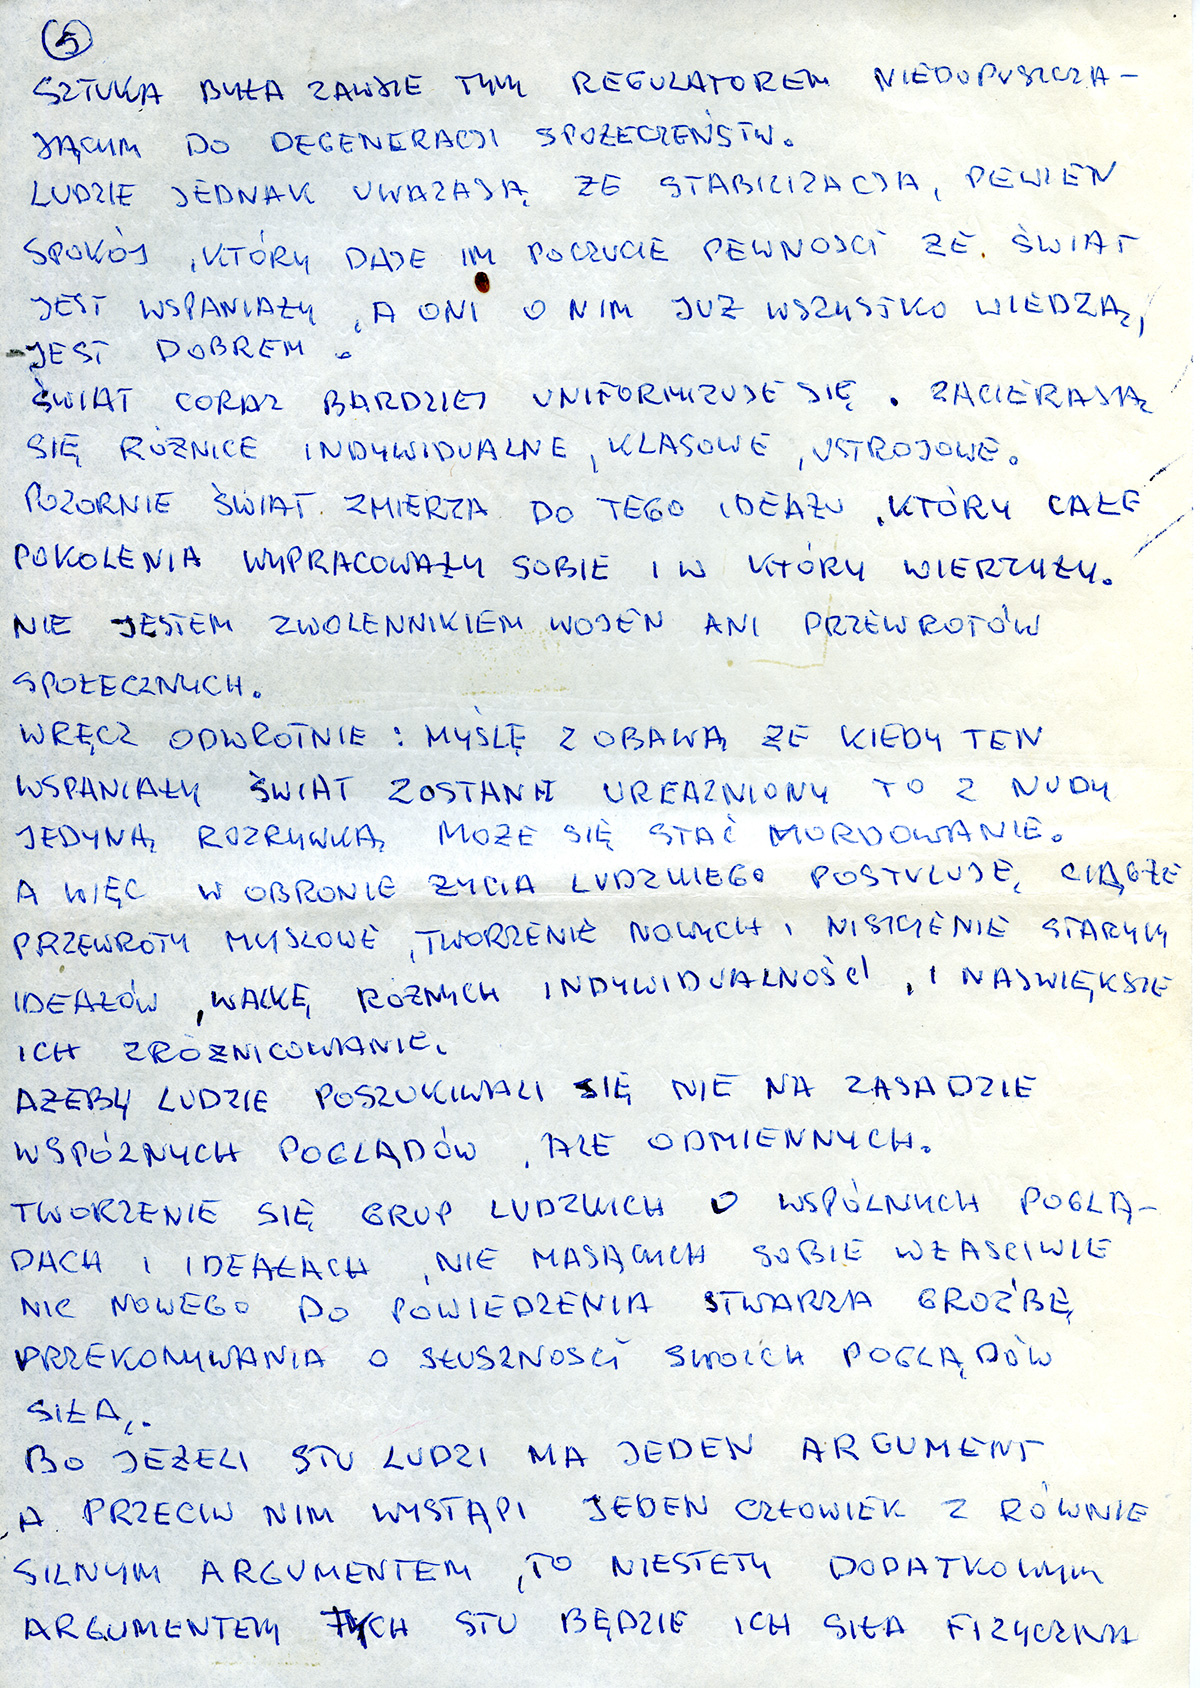 5
SZTUKA BYŁA ZAWSZE TYM REGULATOREM NIEDOPUSZCZA-
JĄCYM DO DEGENERACJI SPOŁECZEŃSTW.
LUDZIE JEDNAK UWAŻAJĄ ŻE STABILIZACJA, PEWIEN
SPOKÓJ, KTÓRY DAJE IM POCZUCIE PEWNOŚCI ŻE ŚWIAT
JEST WSPANIAŁY, A ONI O NIM JUŻ WSZYSTKO WIEDZĄ,
JEST DOBREM.
ŚWIAT CORAZ BARDZIEJ UNIFORMIZUJE SIĘ. ZACIERAJĄ
SIĘ RÓŻNICE INDYWIDUALNE, KLASOWE, USTROJOWE.
POZORNIE ŚWIAT ZMIERZA DO TEGO IDEAŁU, KTÓRY CAŁE
POKOLENIA WYPRACOWAŁY SOBIE I W KTÓRY WIERZYŁY.
NIE JESTEM ZWOLENNIKIEM WOJEN ANI PRZEWROTÓW
SPOŁECZNYCH.
WRĘCZ ODWROTNIE: MYŚLĘ Z OBAWĄ ŻE KIEDY TEN
WSPANIAŁY ŚWIAT ZOSTANIE UREALNIONY TO Z NUDY
JEDYNĄ ROZRYWKĄ MOŻE SIĘ STAĆ MORDOWANIE.
A WIĘC W OBRONIE ŻYCIA LUDZKIEGO POSTULUJĘ, CIĄGŁE
PRZEWROTY MYSLOWE, TWORZENIE NOWYCH I NISZCZENIE STARYCH
IDEAŁÓW, WALKĘ RÓŻNYCH INDYWIDUALNOŚCI, I NAJWIĘKSZE
ICH ZRÓŻNICOWANIE.
AŻEBY LUDZIE POSZUKIWALI SIĘ NIE NA ZASADZIE
WSPÓLNYCH POGLĄDÓW, ALE ODMIENNYCH.
TWORZENIE SIĘ GRUP LUDZKICH O WSPÓLNYCH POGLĄ-
DACH I IDEAŁACH, NIE MAJĄCYCH SOBIE WŁAŚCIWIE
NIC NOWEGO DO POWIEDZENIA STWARZA GROŹBĘ
PRZEKONYWANIA O SŁUSZNOŚCI SWOICH POGLĄDÓW
SIŁĄ.
BO JEŻELI STU LUDZI MA JEDEN ARGUMENT
A PRZECIW NIM WYSTĄPI JEDEN CZŁOWIEK Z RÓWNIE
SILNYM ARGUMENTEM, TO NIESTETY DODATKOWYM
ARGUMENTEM TYCH STU BĘDZIE ICH SIŁA FIZYCZNA